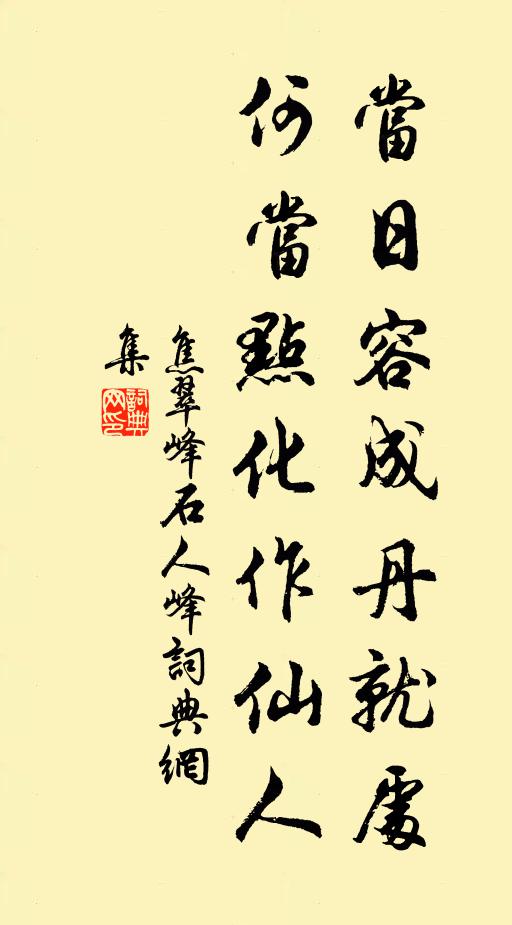 當日容成丹就處
何當點化作仙人
焦翠峰石人峰詞典網
集
詞典
网印